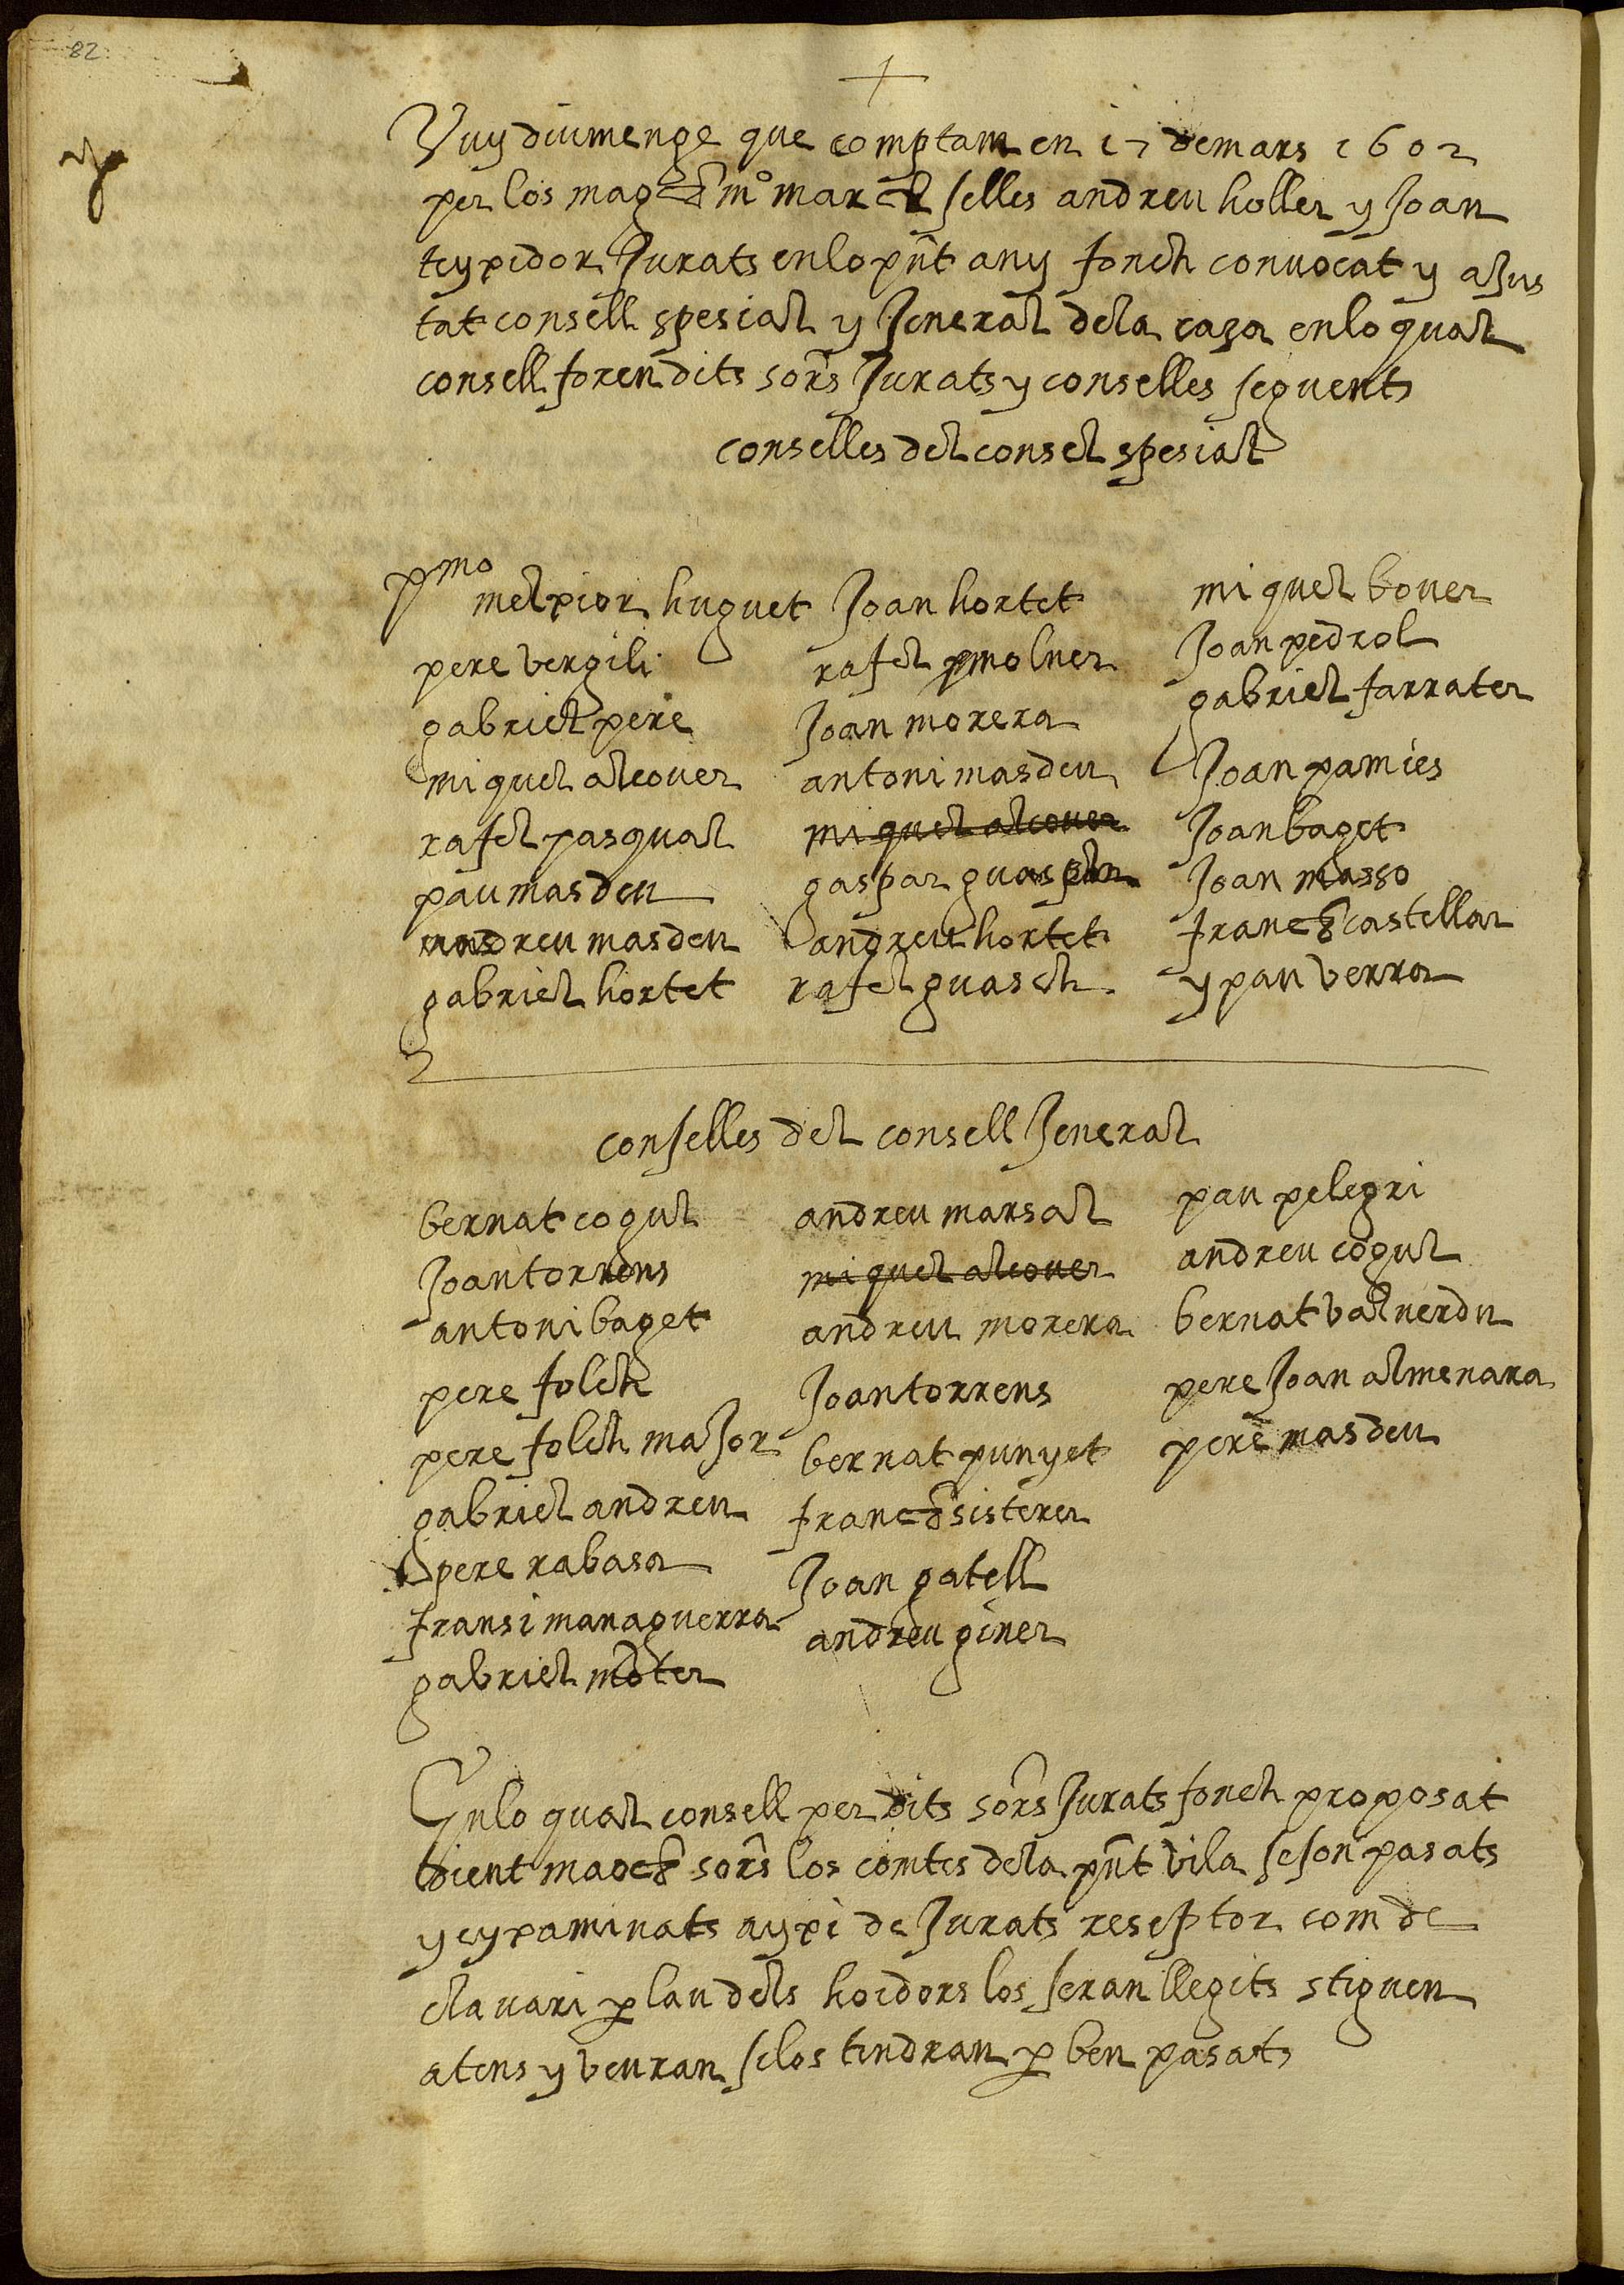 82
+
Vuy diumenge que comptam en 17 de mars 1602
per los mag.chs m.º march selles andreu holler y Joan
teyxidor Jurats en lo pnt any fonch convocat y aJus
tat consell spesial y Jeneral de la casa en lo qual
consell foren dits sors Jurats y conselles seguents
conselles del consel spesial
pmo
melxior huguet Joan hortet miquel bover
pere vergili rafel molner Joan pedrol
gabriel pere Joan morera gabriel farrater
miquel alcover antoni masdeu Joan pamies
rafel pasqual miquel alcover Joan baget
pau masdeu gaspar guasch Joan masso
andreu masdeu andreu hortet franch castellar
gabriel hortet rafel guasch y pau verra
conselles del consell Jeneral
bernat cogul andreu marsal pau pelegri
Joan torrens miquel alcover andreu cogul
antoni baget andreu morera bernat valverdu
pere folch Joan torrens pere Joan almenara
pere folch maJor bernat punyet pere masdeu
gabriel andreu franch sisterer
pere rabasa Joan gatell
fransi managuerra andreu giner
gabriel moter
En lo qual consell per dits sors Jurats fonch proposat
dient magchs sors los comtes de la pnt vila se son pasats
y eyxaminats ayxi de Jurats reseptor com de
clavari p lau dels hoidors los seran llegits stiguen
atens y veuran se los tindran p ben pasats